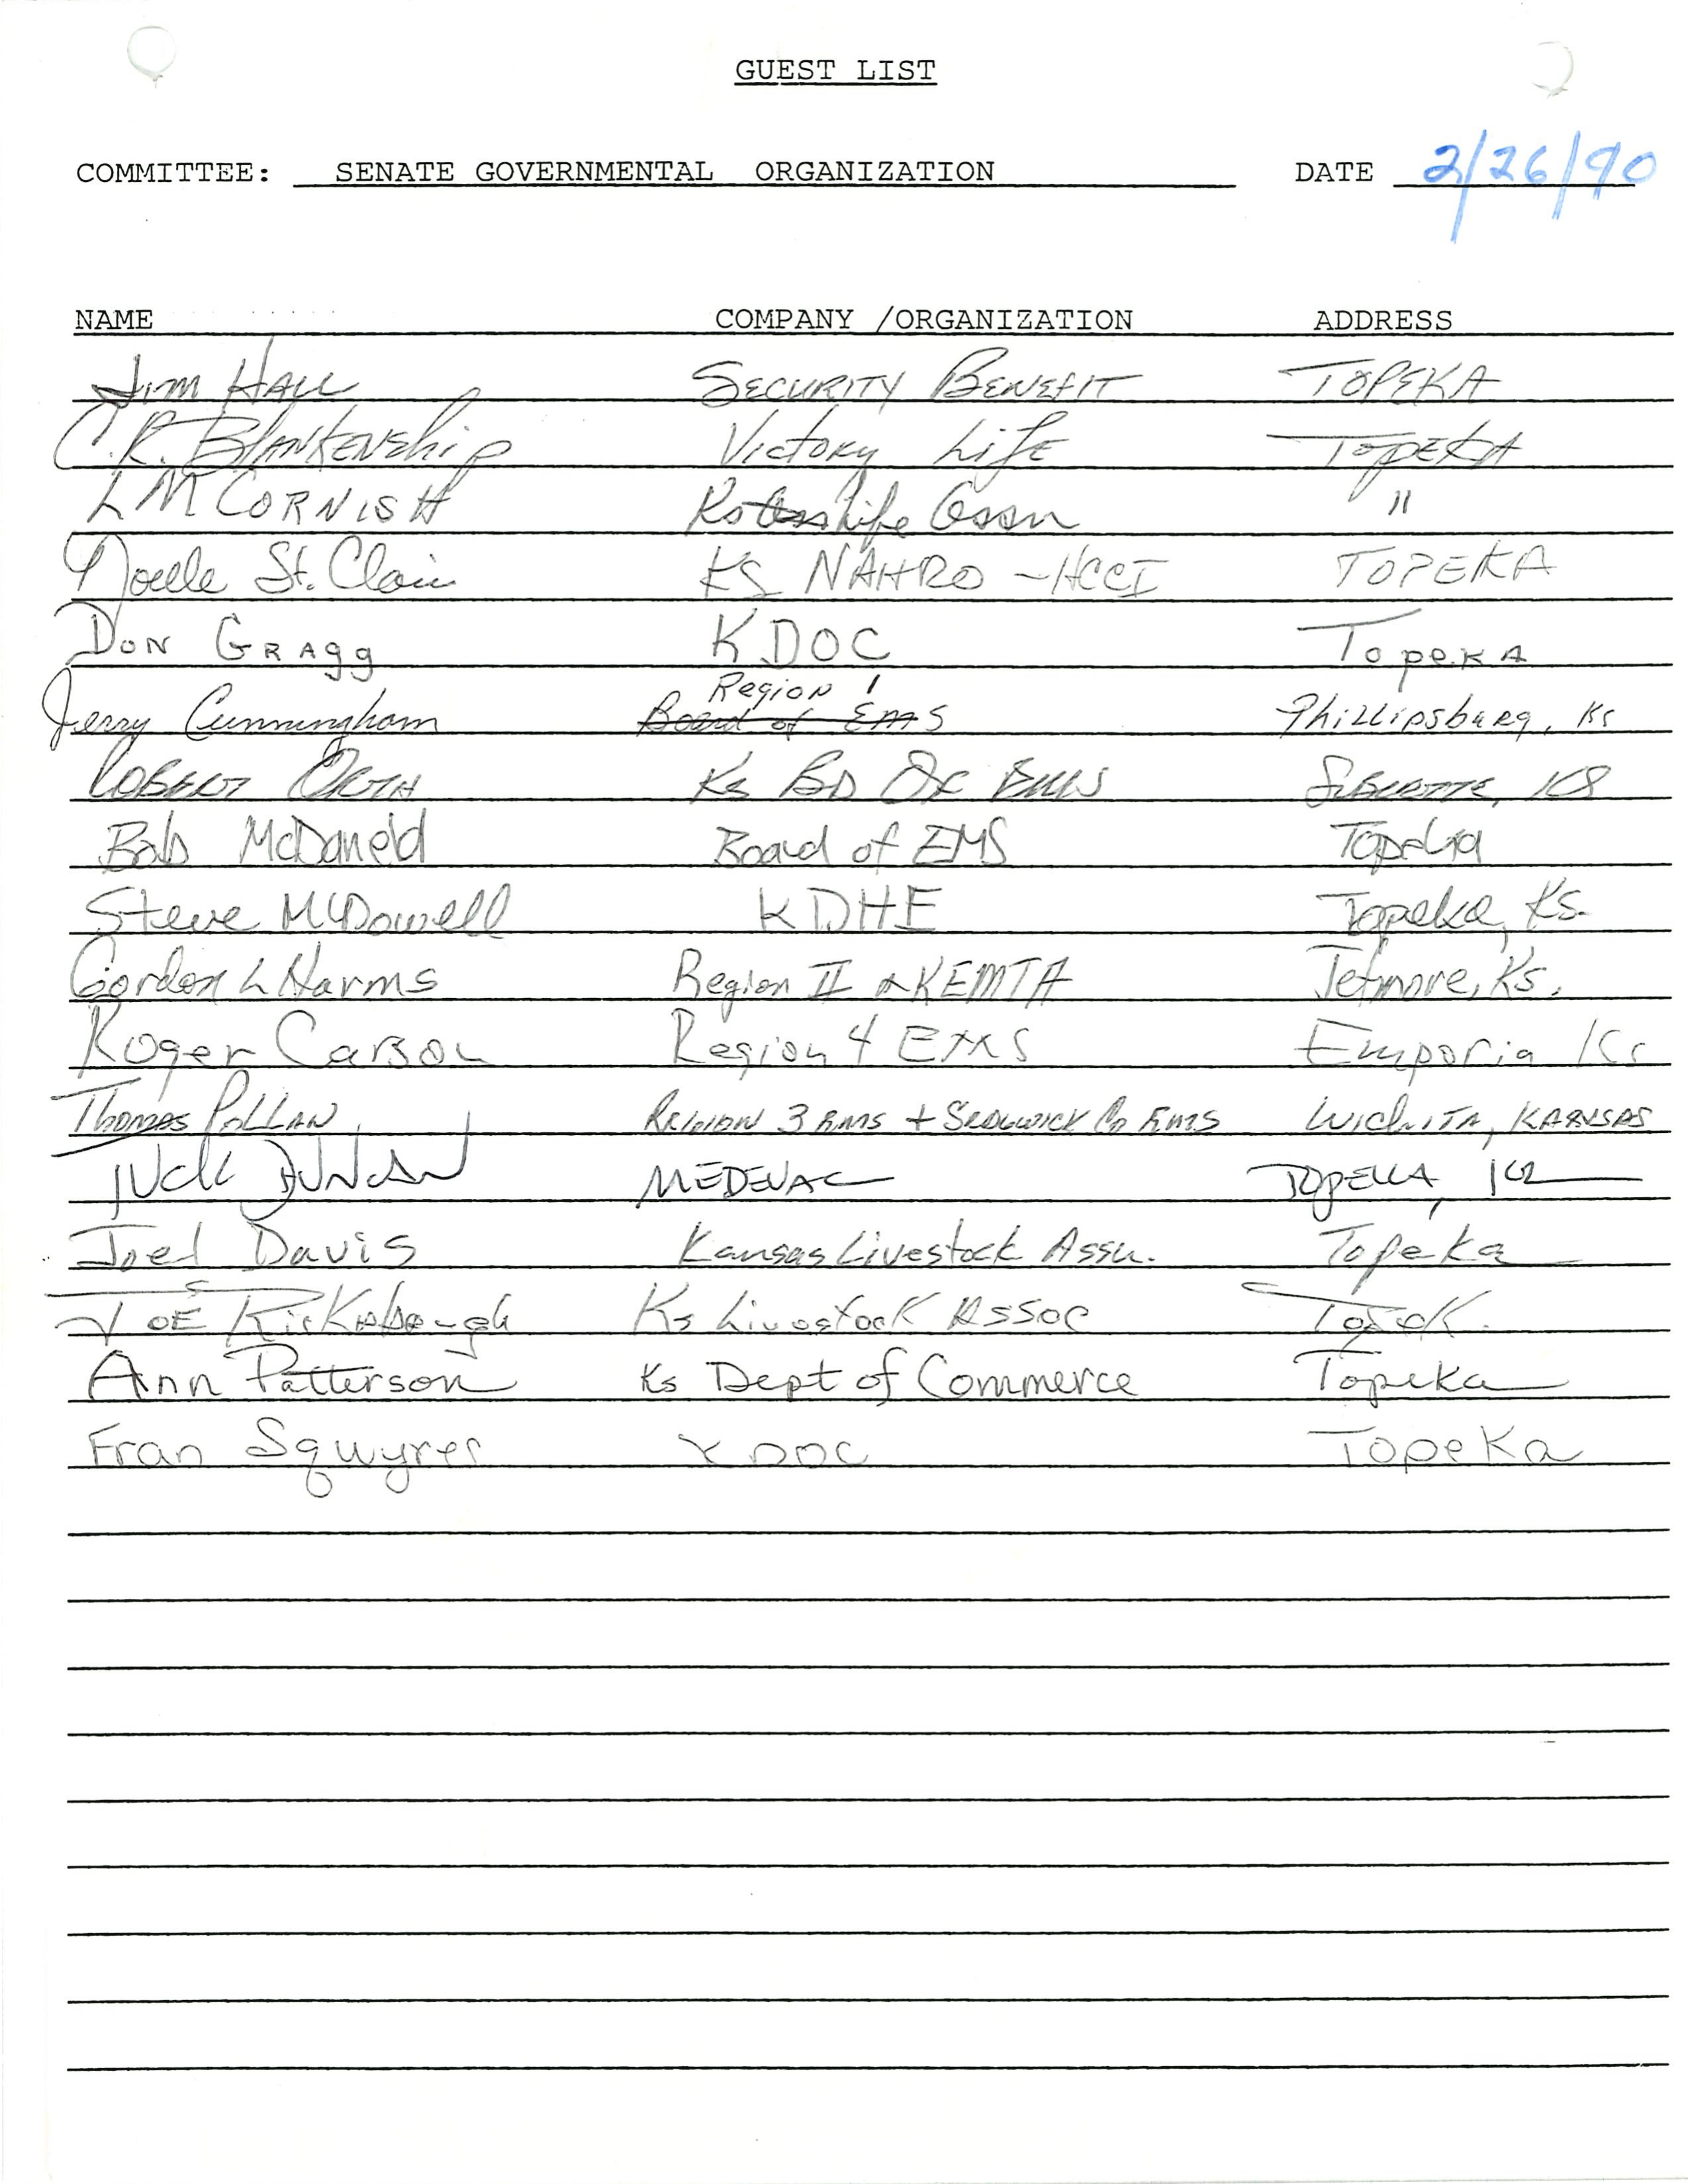 GUEST LIST
COMMITTEE: SENATE GOVERNMENTAL ORGANIZATION DATE 2/26/90
NAME COMPANY /ORGANIZATION ADDRESS
Jim HALL SECURITY BENEFIT TOPEKA
C.R. BLANKENship Victory Life TOPEKA
L M CORNISH Life Assn "
Noelle St. Clair KS NAHRO - HCCI TOPEKA
DON GRAgg KDOC TopeKA
Region 1
Jerry Cunningham Board of EMS Phillipsburg, Ks
ROBERT ORTH Ks BD OF EMS SUBLETTE, KS
Bob McDaneld Board of EMS Topeka
Steve McDowell KDHE Topeka, Ks.
Gordon L Harms Region II & KEMTA Jetmore, Ks.
Roger Carson Region 4 EMS Emporia Ks
Thomas POLLAN REGION 3 EMS + SEDGWICK Co EMS WichiTA, KANSAS
TUCK DUNCAN MEDEVAC TOPEKA, KS
Joel Davis Kansas Livestock Assn. Topeka
JOE Ks Livestock Assoc TopeK.
Ann Patterson Ks Dept of Commerce Topeka
Fran Sqwyres KDOC TopeKa